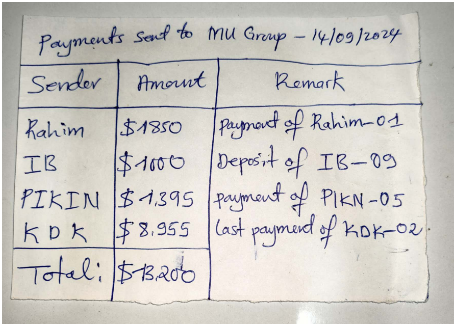 Payments sent to MU Group - 14/09/2024
Sender Amount Remark
Rahim $1850 Payment of Rahim-01
IB $1000 Deposit of IB-09
PIKIN $1,395 payment of PIKN-05
KDK $8,955 Last payment of KDK-02.
Total: $13,200